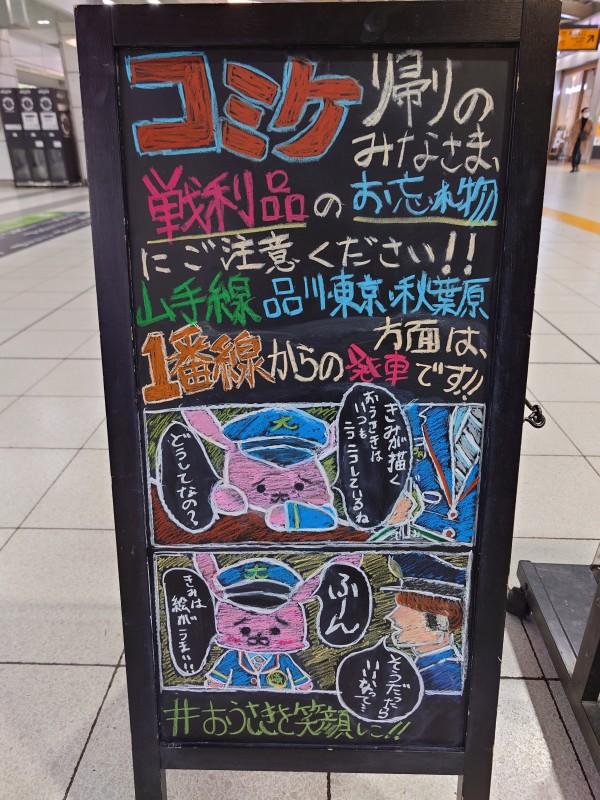 コミケ帰りの
みなさま、
戦利品のお忘れ物
にご注意ください!!
山手線 品川・東京・秋葉原
方面は、
1番線からの発車です!!
きみが描く
おうさきは
いつも
ニコニコしているね
どうしてなの?
大
ふーん
きみは
絵がうまい!!
大
そうだったら
いいなって…
#おうさきと笑顔に!!